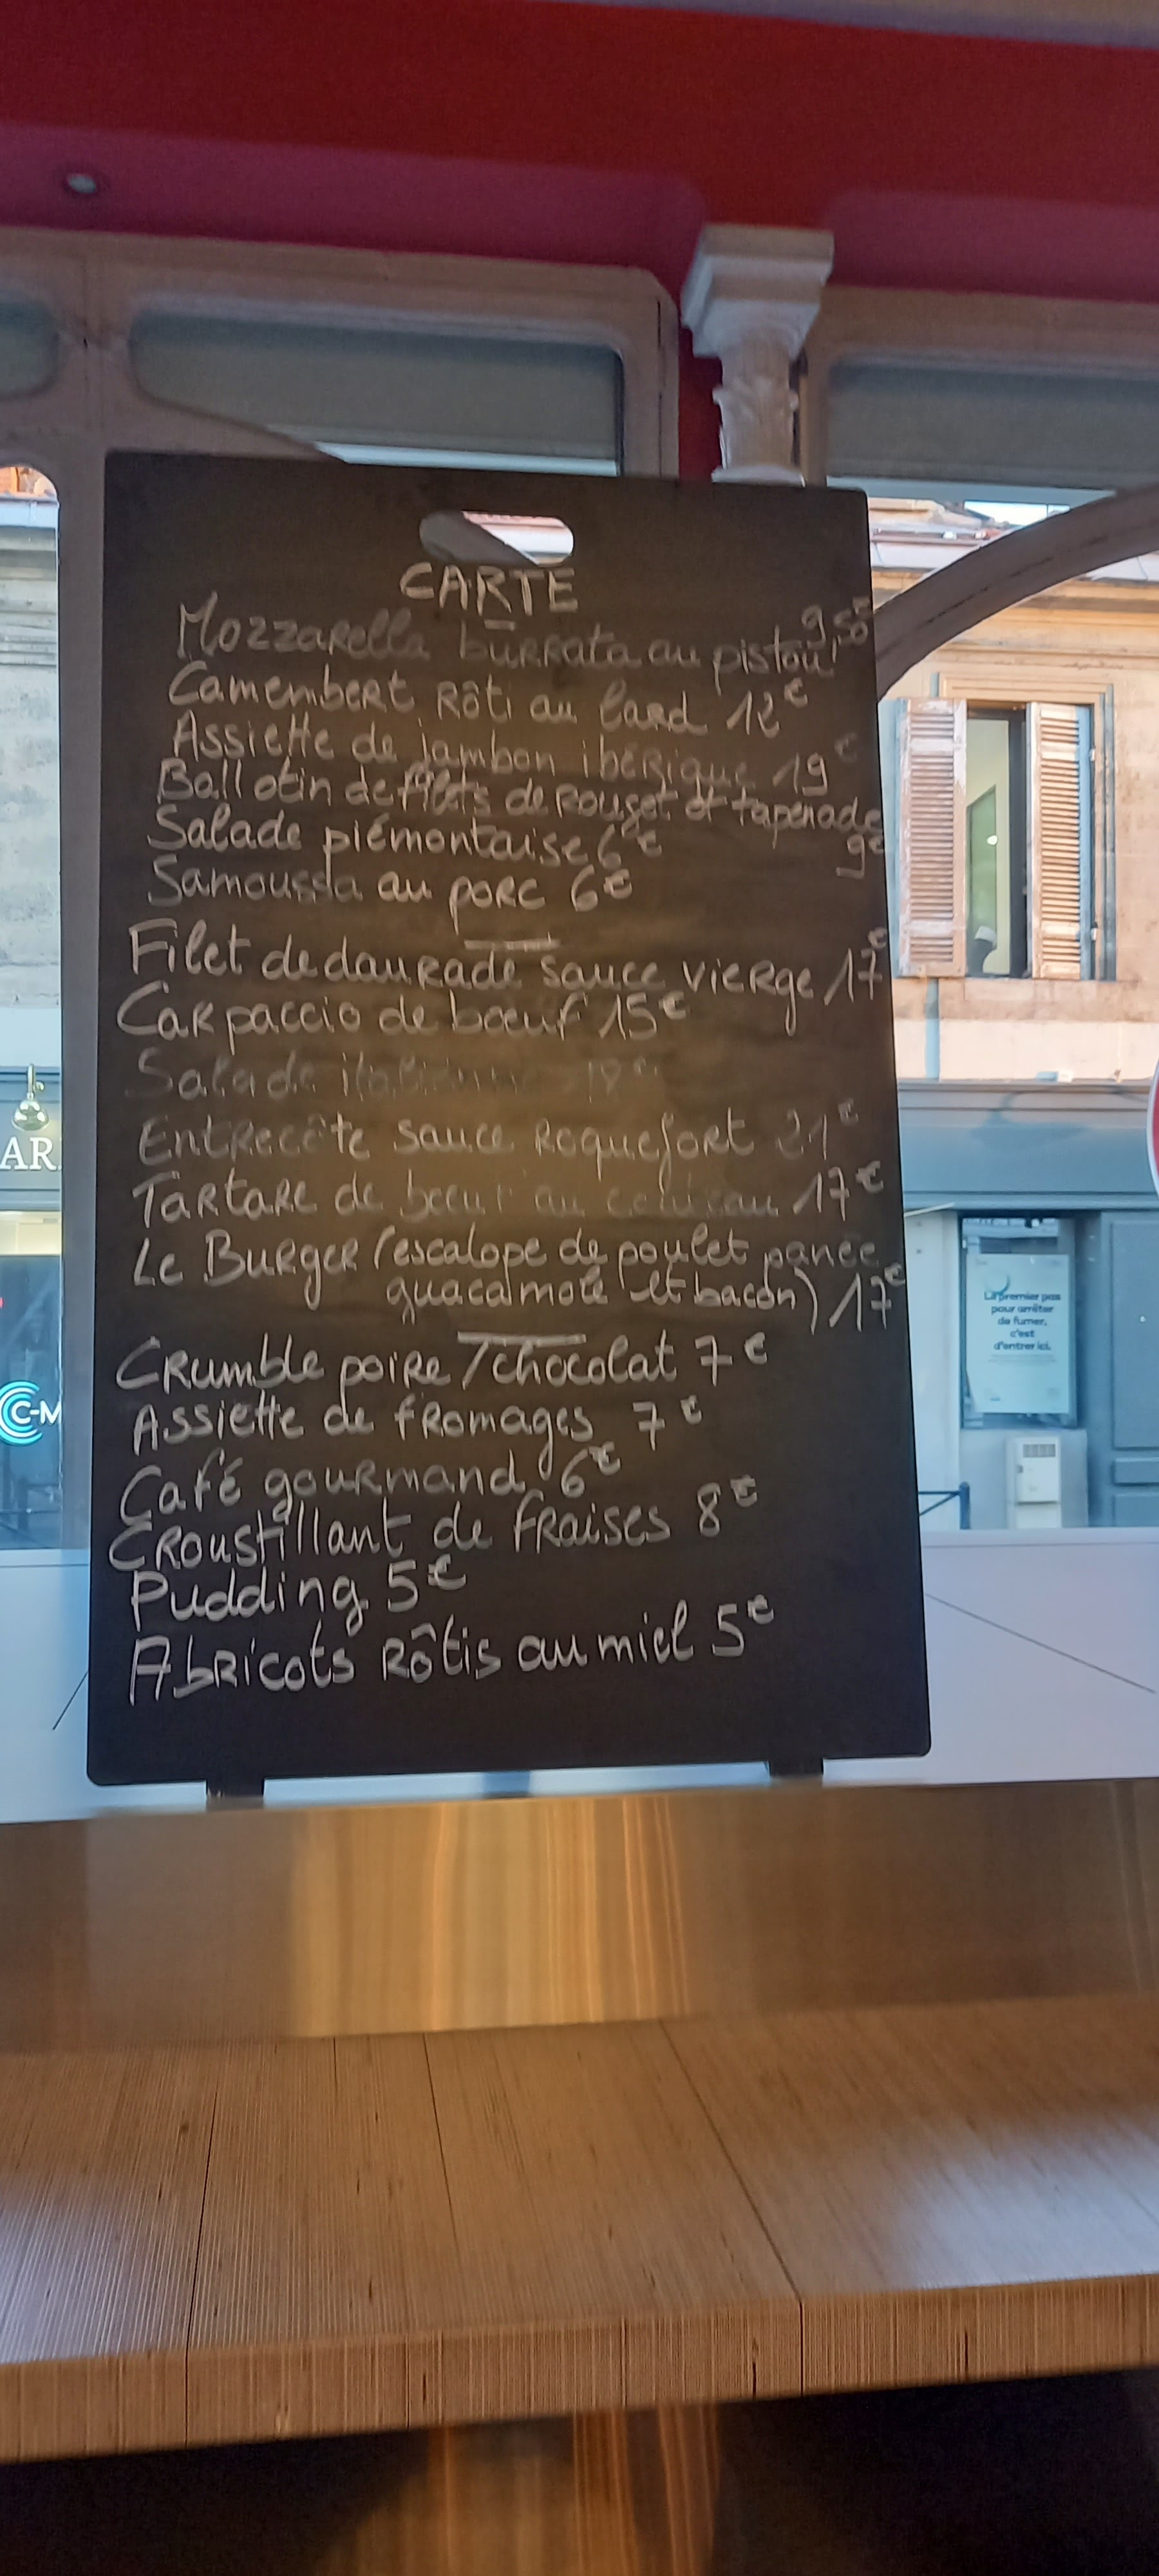 CARTE
Mozzarella burrata au pistou 9,50
Camembert Rôti au lard 12€
Assiette de jambon ibérique 19€
Ballotin de filets de rouget et tapenade
9€
Salade piémontaise 6€
Samoussa au porc 6€
Filet de daurade sauce vierge 17€
Carpaccio de bœuf 15€
Salade italienne
Entrecôte sauce Roquefort 21€
Tartare de bœuf au couteau 17€
Le Burger (escalope de poulet panée
guacamole et bacon) 17€
Crumble poire / chocolat 7€
Assiette de fromages 7€
Café gourmand 6€
Croustillant de fraises 8€
Pudding 5€
Abricots Rôtis au miel 5€
AR
C-M
Le premier pas
pour arrêter
de fumer,
c'est
d'entrer ici.